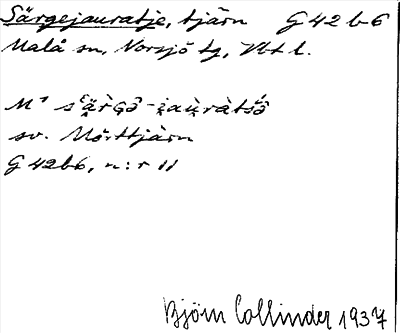 Särgejauratje, tjärn G 42 b 6
Malå sn, Norsjö tg, Vbt l.
sv. Mörttjärn
G 42b6, n:r 11
Björn Collinder 1937